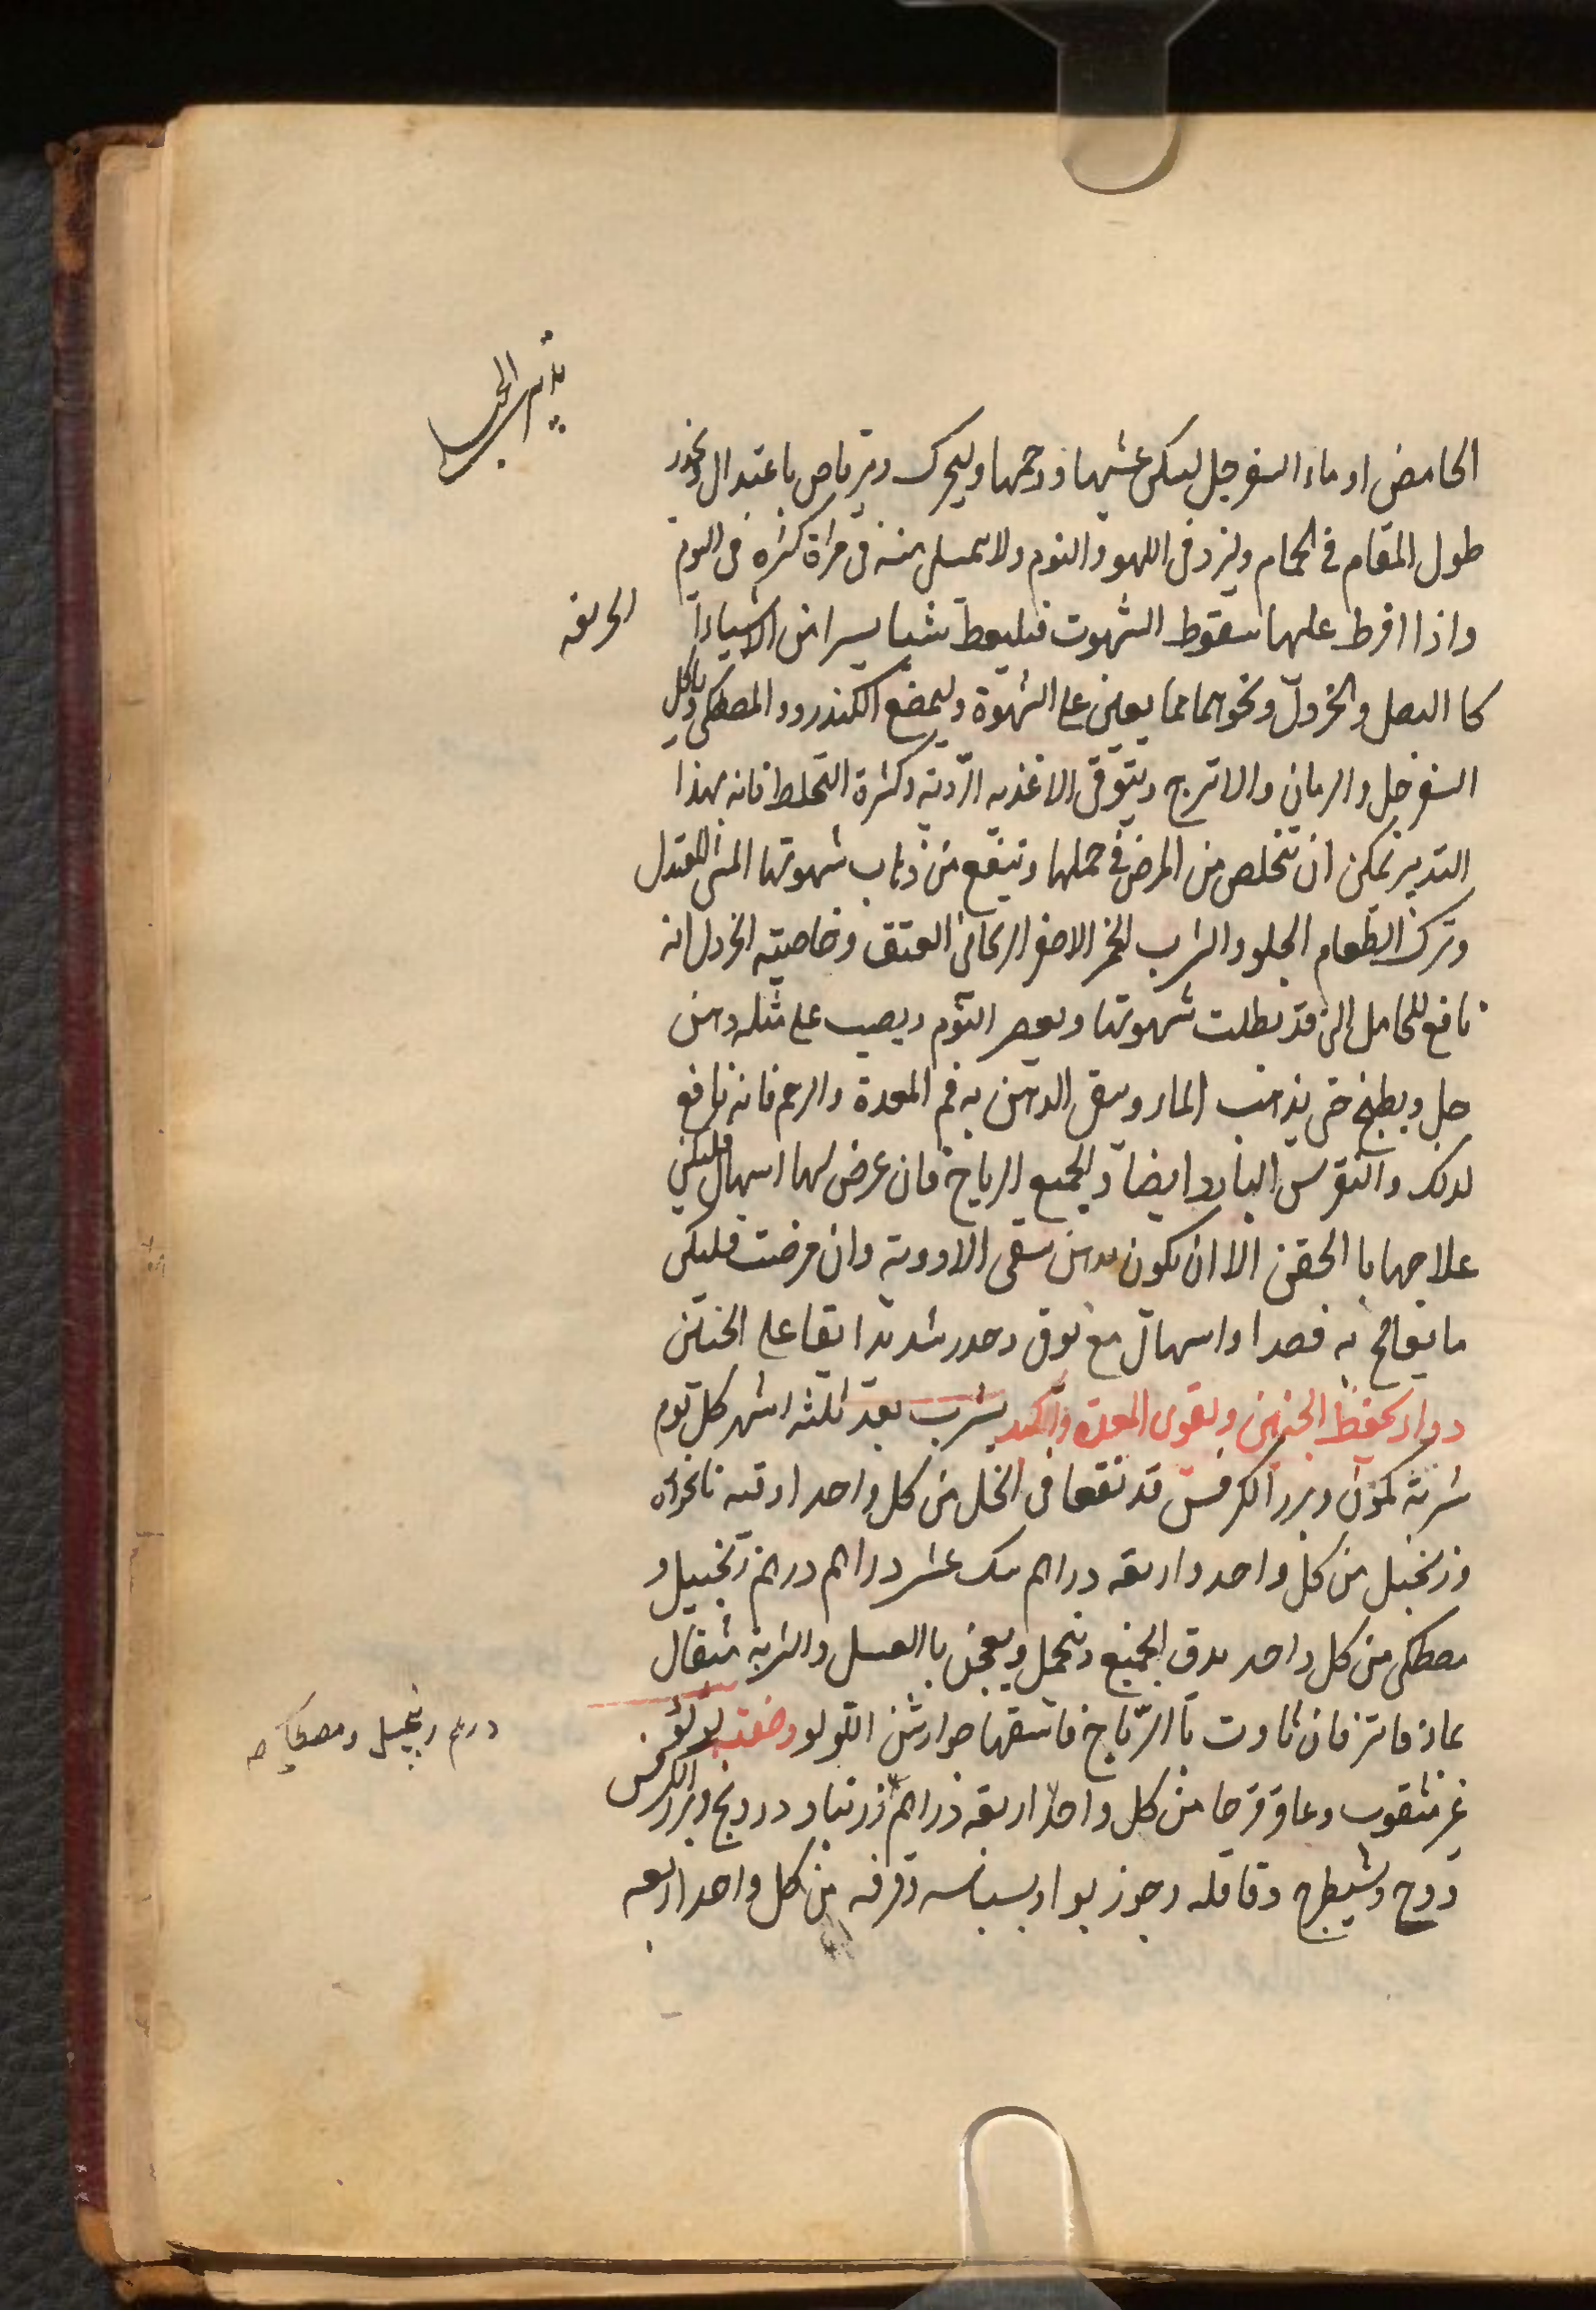 تدبير الحبالى
الحامض او ماء السفرجل ليسكن غشيها ووحمها وليحرك ويرتاض باعتدال ويحذر
طول المقام فى الحمام ولزد فى اللهو والنوم ولا منه فى مراة كثيره فى اليوم
واذا افرط عليها سقوط الشهوت فليعط شيا يسيرا من الاشياء
الحريفه
كا البصل والخردل ونحوهما مما يعين على الشهوة وليمضغ الكندر والمصطكى وياكل
السفرجل والرمان والاترج ويتوقى الاغذيه الردية وكثرة التخلط فانه بهذا
التدبير تمكن ان تتخلص من المرض فى حملها وينفع من ذهاب شهوتها المشى المعتدل
وترك الطعام الحلو والشراب الخمر الاصفر الريحانى العتق وخاصيته الخردل انه
نافع للحامل التى قد بطلت شهوتها ويعصر الثوم ويصب على مثله دهن
حل ويطبخ حتى يذهب الماء ويبقى الدهن به فم المعدة والرحم فانه نافع
لذلك والنقرس البارد ايضا ولجميع الرياح فان عرض لها اسهال فليكن
علاجها با الحقن الا ان يكون بدهن سقى الادوية وان مرضت فليكن
ما يعالج به فصدا واسهال مع توق وحذر شديد ابقا على الجنين
دواء يحفظ الجنين ويقوى المعدة والكبد يشرب بعد ثلثه اشهر كل يوم
شربة كمون وبزر الكرفس قد نقعا فى الخل من كل واحد اوقيه نانخواه
وزنجبيل من كل واحد اربعه دراهم سك عشر دراهم درهم زنجبيل و
مصطكى من كل واحد يدق الجميع وينخل ويعجن با العسل والشربة مثقال
بماء فاتر فان تاوت با الرياح فاسقها جوارشن اللولو وصفته لولو
درهم زنجبيل ومصطكى صح
غير مثقوب وعاقرقرحا من كل واحد اربعه دراهم زرنباد ودرونج وبزر الكرفس
ووج وشيطرج وقاقله وجوز بوا وبسباسه وقرفه من كل واحد اربعه